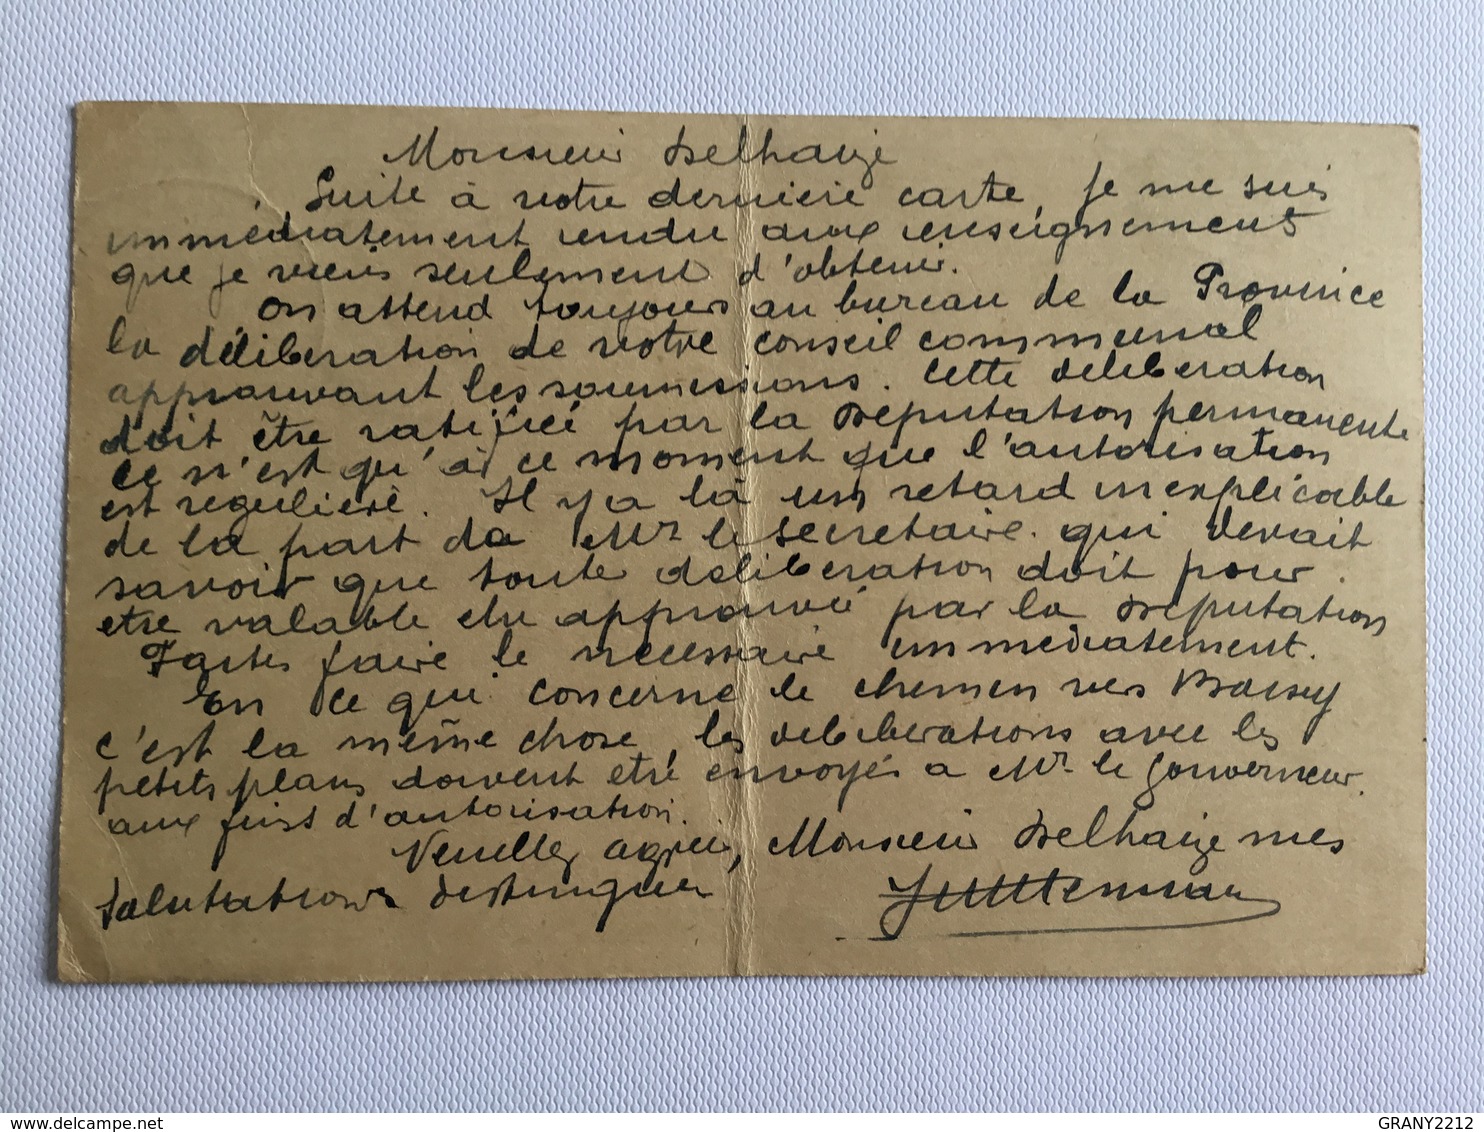 Monsieur Delhaize
Suite à votre dernière carte, je me suis
immédiatement rendu aux renseignements
que je viens seulement d'obtenir.
On attend toujours au bureau de la Province
la déliberation de votre conseil communal
approuvant les soumissions. Cette deliberation
doit être ratifiée par la Deputation permanente
Ce n'est qu'à ce moment que l'autorisation
est regulière. Il y a là un retard inexplicable
de la part de Mr le secretaire. qui devait
savoir que toute déliberation doit pour
etre valable etre approuvée par la Deputation
Faites faire le nécessaire immediatement.
En ce qui concerne le chemin vers
c'est la même chose, les deliberations avec les
petits plans doivent etre envoyés à Mr le Gouverneur.
aux fins d'autorisation.
Veuillez agréer, Monsieur Delhaize mes
Salutations distinguées
GRANY2212